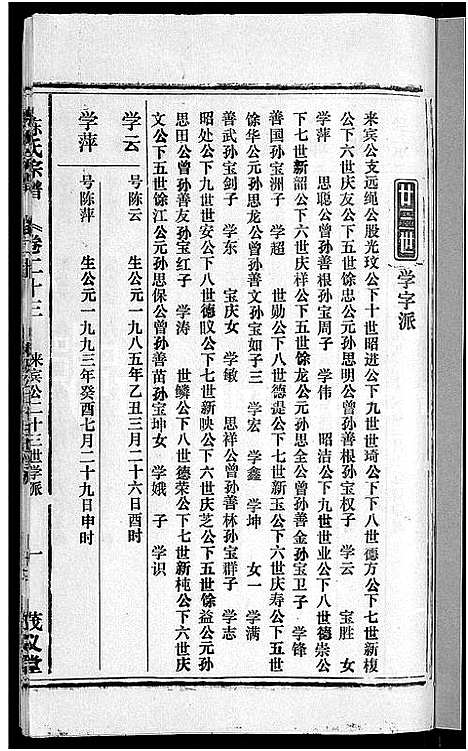 廿三世
学字派
来宾公支远绳公股光玟公下十世昭进公下九世世琦公下下八世德方公下七世新椱
公下六世庆友公下五世馀忠公元孙思明公曾孙善根孙宝权子　学云　宝胜　女
学萍　思聪公曾孙善根孙宝周子　学伟　昭洁公下九世世业公下八世德崇公
下七世新韶公下六世庆样公下五世馀龙公元孙思全公曾孙善金孙宝卫子　学锋
善国孙宝洲子　学超　世勋公下八世德湜公下七世新玉公下六世庆寿公下五世
馀华公元孙思龙公曾孙善文孙宝如子三　学宏　学鑫　学坤　女一　学满
善武孙宝剑子　学东　宝庆女　学敏　思祥公曾孙善林孙宝群子　学志
昭处公下九世世安公下八世德旼公下七世新映公下六世庆芝公下五世馀益公元孙
思田公曾孙善友孙宝红子　学涛　世鳞公下八世德荣公下七世新杶公下六世庆
文公下五世馀江公元孙思保公曾孙善苗孙宝坤女　学娥　子　学识
学云　号陈云　生公元一九八五年乙丑三月二十六日酉时
学萍　号陈萍　生公元一九九三年癸酉七月二十九日申时
陈氏宗谱　卷二十三　来宾公二十三世学派　一　茂义堂